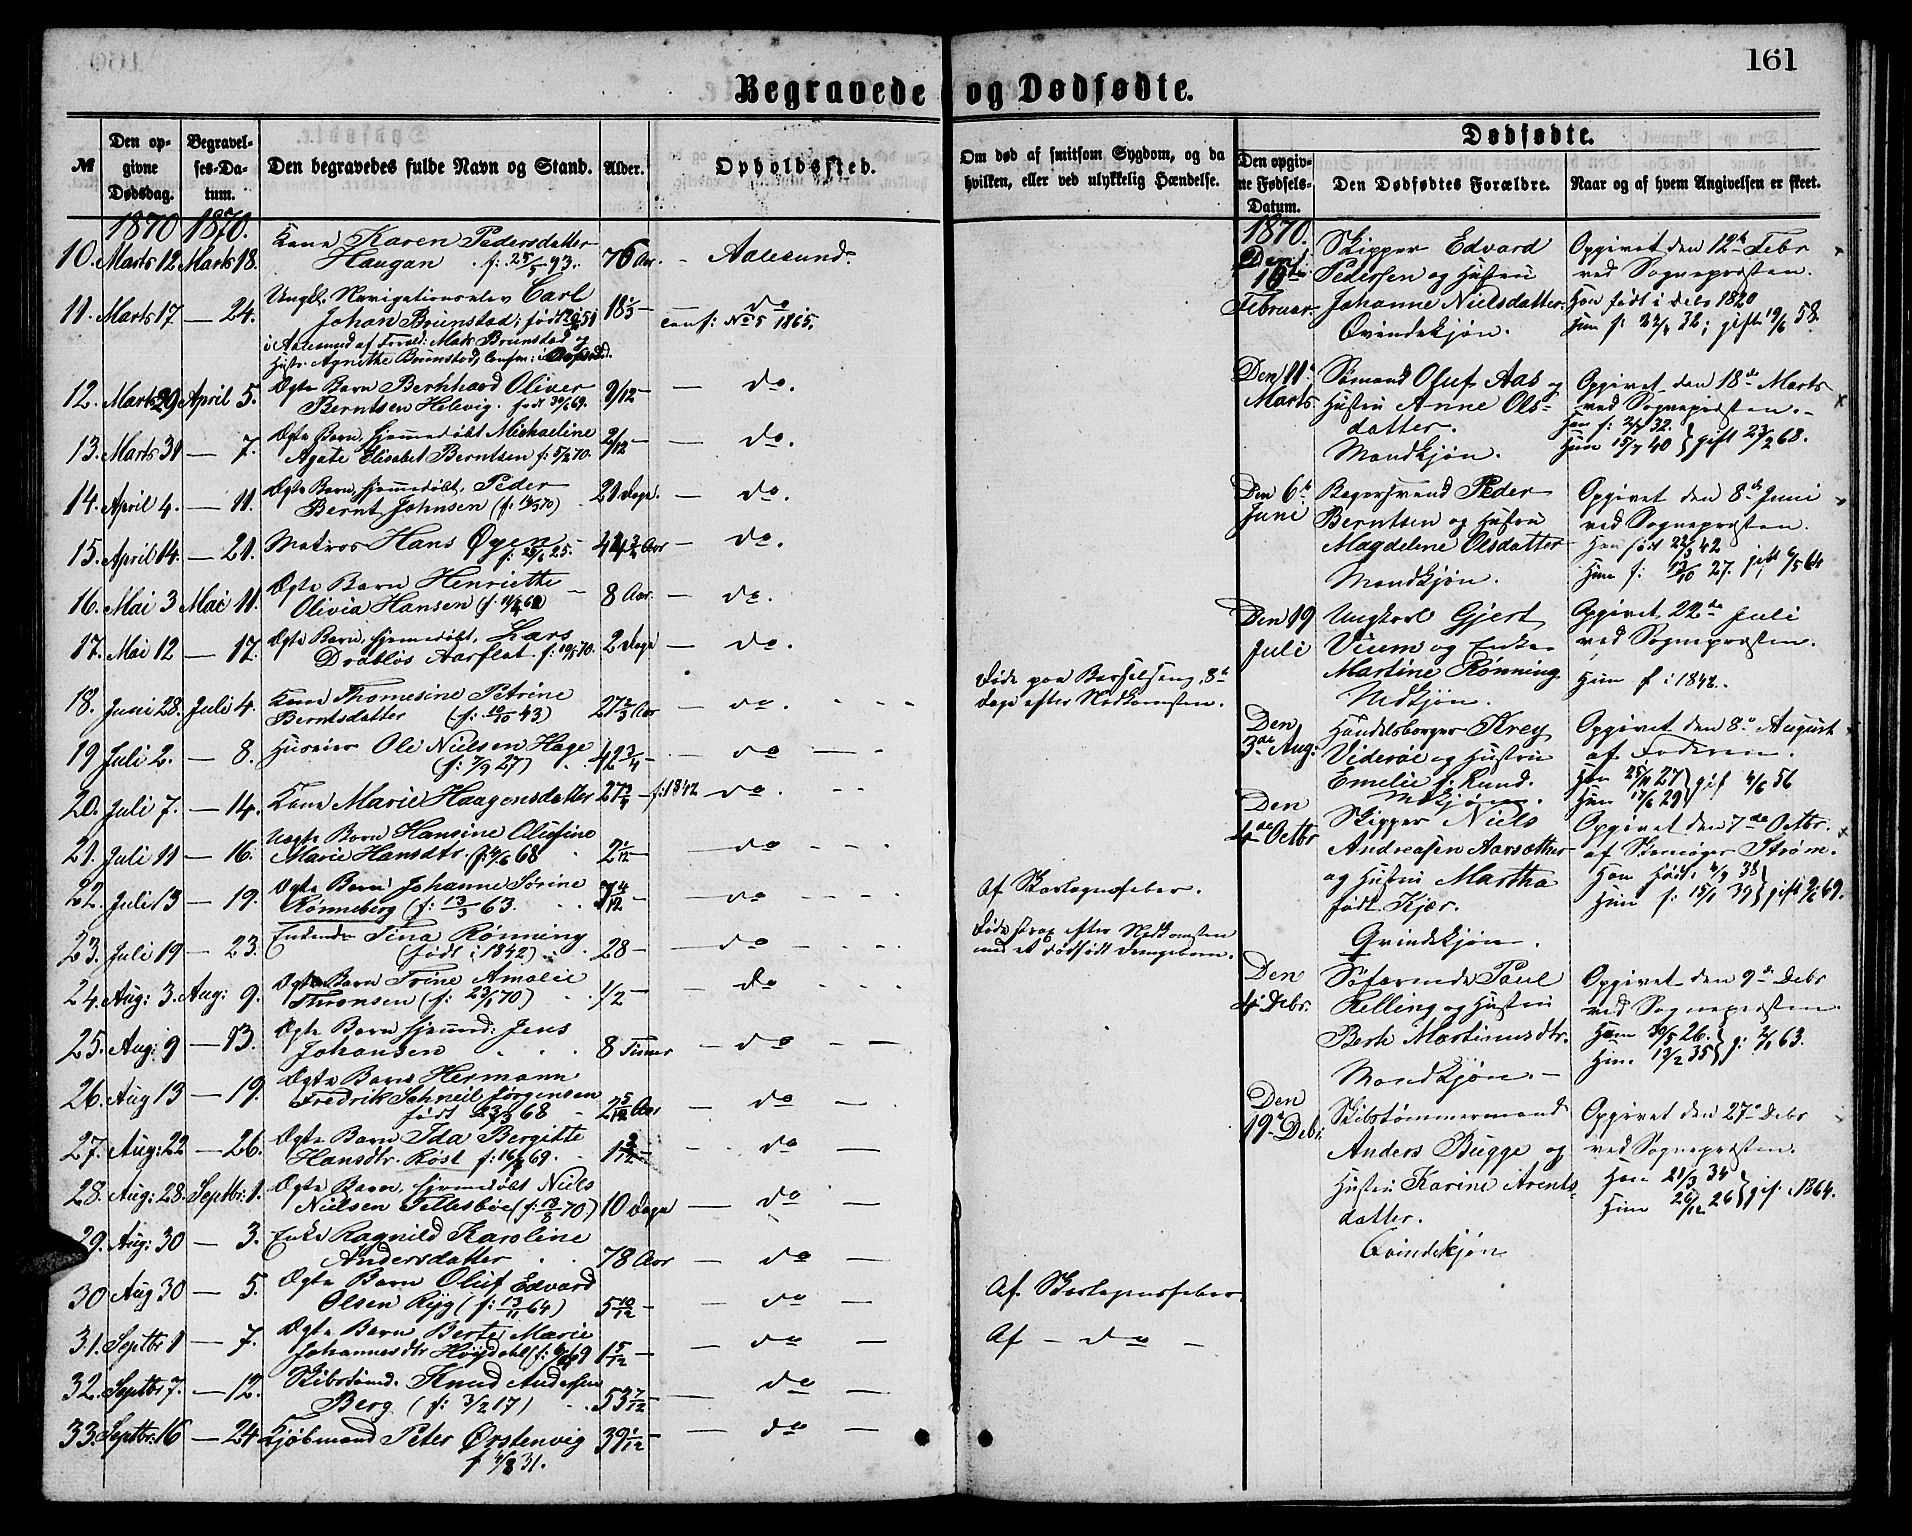 161
Begravede og Dødfødte.
№
Den opgivne Dødsdag.
Begravelses-Datum.
Den begravedes fulde Navn og Stand.
Alder.
Opholdssted.
Om død af smitsom Sygdom, og da hvilken, eller ved ulykkelig Hændelse.
Dødfødte.
Den opgivne Fødsels-Datum.
Den Dødfødtes Forældre.
Naar og af hvem Angivelsen er skeet.
1870 1870.
10. Marts 12 Marts 18. Kone Karen Pedersdatter
Haugan f: 25/5 93. 76 Aar. - Aalesund.
11. Marts 17 — 24. Ungk. Navigationselev Carl
Johan Brunstad; født 51 18 1/3 — do
i Aalesund af Foræld: Mak Brunstad og conf: No 5 1865.
Hustr. Agnethe Brunstad, Confirm: i
12. Marts 29 April 5. Ægte Barn Bernhard Oliver
Berntsen Helevig. født 30/6 69. 9/12 — do.
13. Marts 31 — 7. Ægte Barn, hjemmedøbt Michaeline
Agate Elisabet Berntsen f: 5/2 70. 2/12 — do.
14. April 4. — 11. Ægte Barn, hjemmedøbt, Peder
Bernt Johnsen (f: 14/3 70) 21 Dage. — do.
15. April 14. — 21. Matros Hans Øyen
f: 25/6 25. 44 3/4 Aar — do.
16. Mai 3 Mai 11. Ægte Barn Henriette
Olivia Hansen 8 Aar. — do.
17. Mai 12 — 17. Ægte Barn, hjemmedøbt, Lars
Drabløs Aarflot f: 10/5 70. 2 Dage — do.
18. Juni 28. Juli 4. Kone Thomesine Petrine
Berntsdatter (f: 10/10 43) 27 2/3 Aar — do. Døde paa Barselseng, 8de
Dage efter Nedkomsten.
19 Juli 2. — 8. Huseier Ole Nielsen Hage
(f: 7/9 27) 42 3/4 — do —
20. Juli 7. — 14. Kone Marie Haagensdatter 27 3/4 — f: 1842 do.
21. Juli 11 — 16. Uægte Barn Hansine Olufine
Marie Hansdtr. (f: 4/6 68 2 1/12 — do
22. Juli 13 — 19. Ægte Barn Johanne Sørine
Rønneberg (f: 13/3 63. 7 4/12 — do Af Skarlagensfeber.
23. Juli 19 — 23. Tina Rønning
(født i 1842) 28 — do Døde strax efter Nedkomsten
med et dødfødt Drengebarn.
24. Aug: 3. Aug: 9. Ægte Barn Trine Amalie
Thronsen (f: 23/1 70) 1/2 — do
25. Aug: 9 — 13. Ægte Barn hjemmd: Jens
Johansen 8 Timer — do —
26. Aug 13 — 19. Ægte Barn Hermann
Fredrik Schneil Jørgensen
født 23/3 68 2 5/12 Aar — do —
27. Aug: 22 — 26. Ægte Barn Ida Bergitte
Hansdtr. Røst f: 69. — do
28. Aug: 28. Septbr: 1. Ægte Barn, hjemmedøbt Niels
Nielsen Tellesbøe (f: 18/8 70) 10 Dage — do —
29. Aug: 30 — 3. Enke Ragnild Karoline
Andersdatter 78 Aar — do —
30 Aug 30 — 5. Ægte Barn Oluf Edvard
Olsen Ryg (f: 13/11 64) 5 10/12 — do — Af Skarlagensfeber.
31. Septbr 1 — 7. Ægte Barn Berte Marie
Johannesdtr Høydahl 69 1 5/12 — do — Af - do -
32. Septbr 7. — 12. Skibstømd. Knud Andersen
Berg (f: 3/2 17) 53 7/12 — do —
33. Septbr: 16 — 24 Kjøbmand Peter Ørstenvig
f 4/8 31. 39 1/12 — do —
1870.
Den 10de Februar
Skipper Edvard
Pedersen og Hustru
Johanne Nielsdatter.
Qvindekjøn.
Opgivet den 12te Febr
ved Sognepræsten.
Han født i Debr 1820
Hun f: 32; gift 19/6 58.
Den 11te Marts
Sømand Oluf Aas og
Hustru Anne Ols-
datter.
Mandkjøn.
Opgivet den 18de Marts
ved Sognepræsten.
Han f: 32.
Hun 15/7 40 } gift 27/2 68.
Den 6te Juni
Bagersvend Peder
Berntsen og Hustru
Magdelene Olsdatter
Mandkjøn.
Opgivet den 8de Juni
ved Sognepræsten.
Han født 22/3 42
Hun f: 13/10 27. gift 6/5 64
Den 19 Juli
Ungkarl Gjert
Vium og Enke
Martine Rønning
Mdkjøn.
Opgivet 22de Juli
ved Sognepræsten.
Hun f i 1842.
Den 3de Aug:
Handelsborger Krey
Viderøe og Hustru
Emelie f: Rund.
Mdkjøn.
Opgivet den 8de August
af Faderen.
Han 25/11 27
Hun 17/6 29 } gift 4/6 56
Den 4de Octbr
Skipper Niels
Andreasen Aarsæther
og Hustru Martha
født Kjær.
Qvindekjøn.
Opgivet den 7de Octbr.
af Strøm.
Han født 4/9 38
Hun f: 15/1 39 } gift 69.
Den 4de Debr.
Søfarende Paul
Relling og Hustru
Berte Martinusdtr.
Mandkjøn. —
Opgivet den 9de Debr
ved Sognepræsten
Han 30/5 26.
Hun. 13/2 35 } g: 2/1 63.
Den 19de Debr.
Skibstømmermand
Anders Bugge og
Hustru Karine Arents-
datter.
Qvindekjøn
Opgivet den 27de Debr
ved Sognepræsten.
Han 21/3 34
Hun 26/12 26 } gift i 1864.